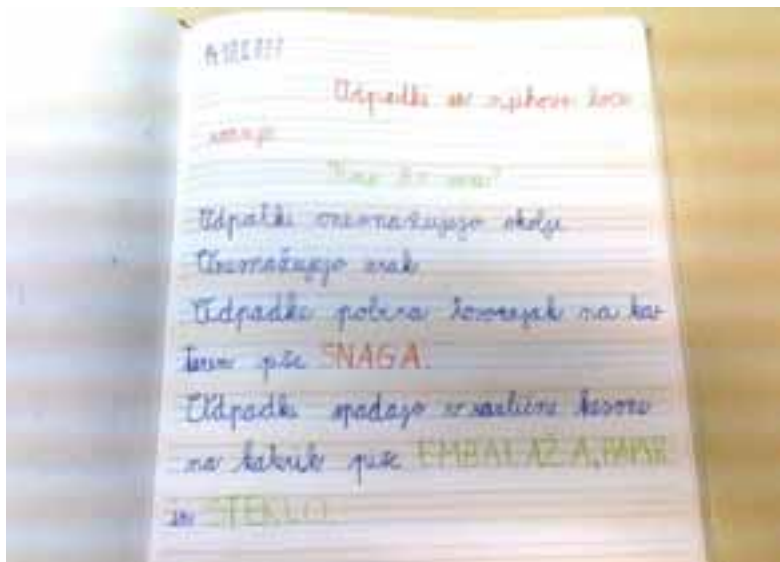 Odpadki in njihovo loče
vanje
Kaj že vem?
Odpatki onesnažujejo okolje
Onesnažujejo zrak
Odpadke pobira tovornjak na ka-
terem piše SNAGA.
Odpadki spadajo v različne
na katerih piše EMBALAŽA, PAPIR
in STEKLO